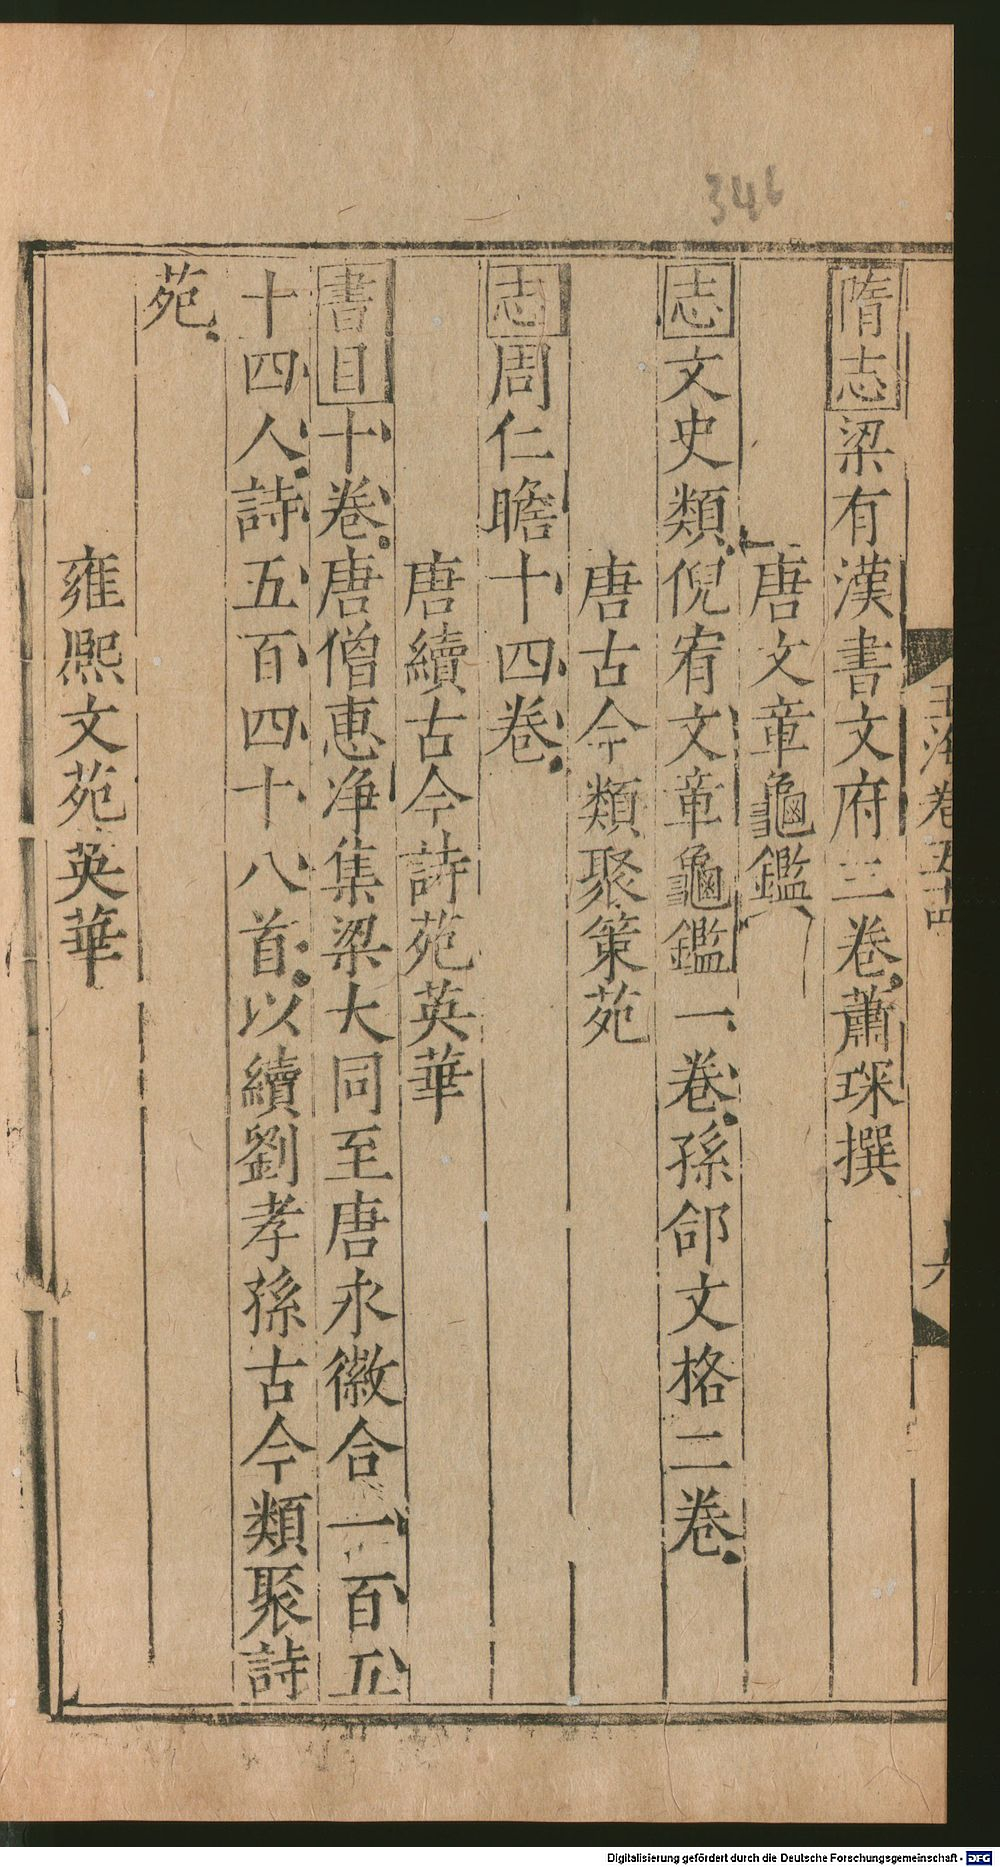 346
玉海卷五十四
六
隋志梁有漢書文府三卷蕭琛撰
唐文章龜鑑
志文史類倪宥文章龜鑑一卷孫郃文格二卷
唐古今類聚策苑
志周仁瞻十四卷
唐續古今詩苑英華
書目十卷唐僧惠净集梁大同至唐永徽合一百五
十四人詩五百四十八首以續劉孝孫古今類聚詩
苑
雍熙文苑英華
Digitalisierung gefördert durch die Deutsche Forschungsgemeinschaft - DFG